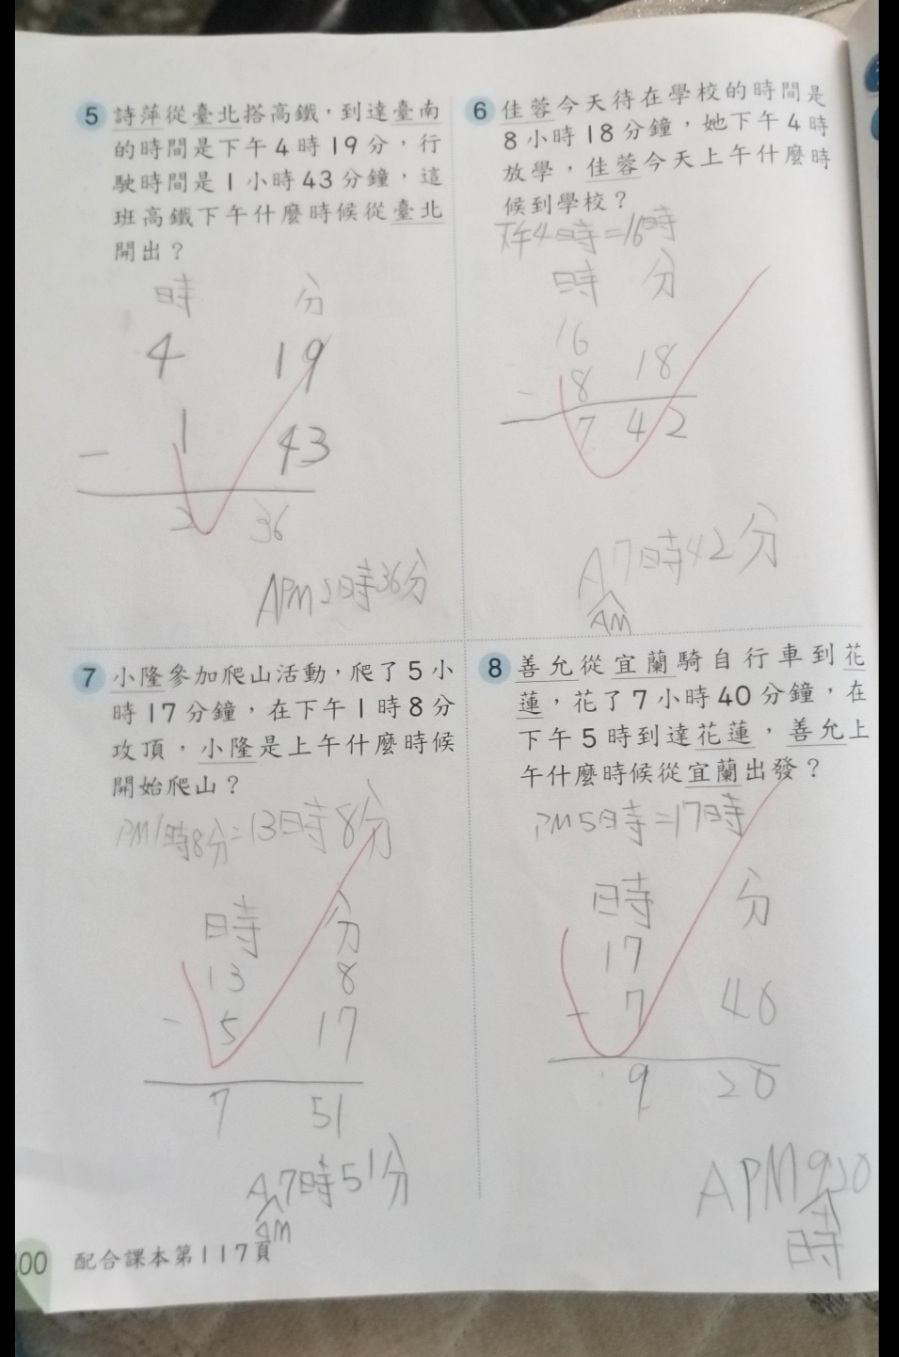 5 詩萍從臺北搭高鐵，到達臺南
的時間是下午4時19分，行
駛時間是1小時43分鐘，這
班高鐵下午什麼時候從臺北
開出？
時 分
4 19
- 1 43
2 36
A PM 2時36分
6 佳蓉今天待在學校的時間是
8小時18分鐘，她下午4時
放學，佳蓉今天上午什麼時
候到學校？
下午4時=16時
時 分
16
- 8 18
7 42
A 7時42分
AM
7 小隆參加爬山活動，爬了5小
時17分鐘，在下午1時8分
攻頂，小隆是上午什麼時候
開始爬山？
PM1時8分=13時8分
時 分
13 8
- 5 17
7 51
A 7時51分
AM
8 善允從宜蘭騎自行車到花
蓮，花了7小時40分鐘，在
下午5時到達花蓮，善允上
午什麼時候從宜蘭出發？
PM5時=17時
時 分
17
- 7 40
9 20
A PM 9 20
時
00 配合課本第117頁